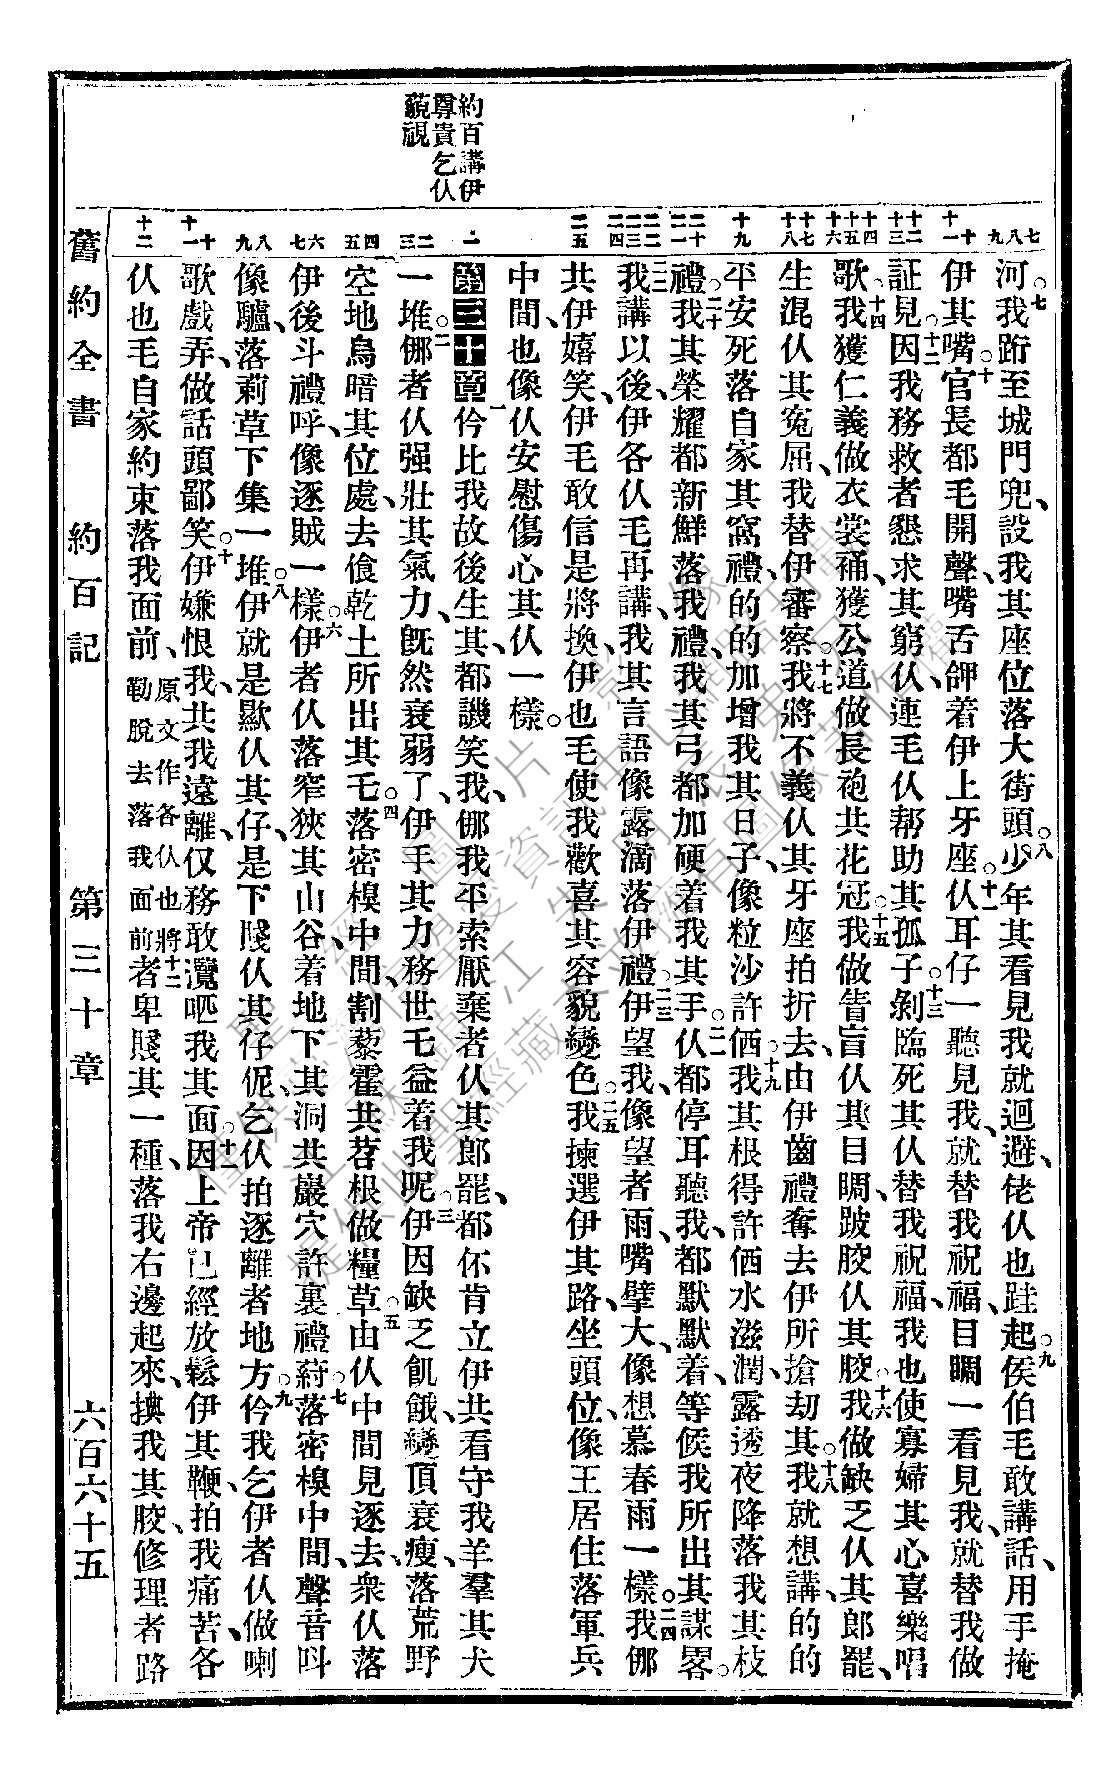 約百講伊
尊貴乞仸
藐視
河。七我跻至城門兜、設我其座位落大街頭。八少年其看見我就迴避、佬仸也跬起。九侯伯毛敢講話、用手掩
伊其嘴。十官長都毛開聲、嘴舌舺着伊上牙座。十一仸耳仔一聽見我、就替我祝福、目睭一看見我、就替我做
証見。十二因我務救者懇求其窮仸、連毛仸帮助其孤子。十三剝臨死其仸替我祝福、我也使寡婦其心喜樂唱
歌。十四我獲仁義做衣裳補、獲公道做長袍共花冠。十五我做眚盲仸其目睭、跛胶仸其胶。十六我做缺乏仸其郎罷、
生混仸其寃屈、我替伊審察。十七我將不義仸其牙座拍折去、由伊齒禮奪去伊所搶刼其。十八我就想講、的的
平安死落自家其窩禮、的的加增我其日子、像粒沙許価。十九我其根得許価水滋潤、露透夜降落我其枝
禮。二十我其榮耀都新鮮落我禮、我其弓都加硬着我其手。二一仸都停耳聽我、我都默默着、等候我所出其謀畧。
二二我講以後、伊各仸毛再講、我其言語像露滴落伊禮。二三伊望我、像望者雨、嘴擘大、像想慕春雨一樣。二四我㑚
共伊嬉笑、伊毛敢信是將換、伊也毛使我歡喜其容貌變色。二五我揀選伊其路、坐頭位、像王居住落軍兵
中間、也像仸安慰傷心其仸一樣。
第三十章 一伶比我故後生其、都譏笑我、㑚我平索厭棄者仸其郎罷、都伓肯立伊共看守我羊羣其犬
一堆。二㑚者仸强壯其氣力、旣然衰弱了、伊手其力務世乇益着我呢。三伊因缺乏飢餓、變頂衰瘦、落荒野
空地烏暗其位處、去食乾土所出其乇。四落密模中間、割藜藿共苕根做糧草。五由仸中間見逐去、衆仸落
伊後斗禮呼、像逐賊一樣。六伊者仸落窄狹其山谷、着地下其洞共巖穴許裏禮𥴊。七落密模中間、聲音呌
像驢、落莿草下集一堆。八伊就是獃仸其仔、是下賤仸其仔伲、乞仸拍逐離者地方。九伶我乞伊者仸做喇
歌戲弄、做話頭鄙笑。十伊嫌恨我、共我遠離、仅務敢灒㕷我其面。十一因上帝已經放鬆伊其鞭、拍我痛苦、各
仸也毛自家約束落我面前、原文作各仸也將勒脫去落我面前十二者卑賤其一種、落我右邊起來、捵我其胶、修理者路
舊約全書 約百記 第三十章 六百六十五